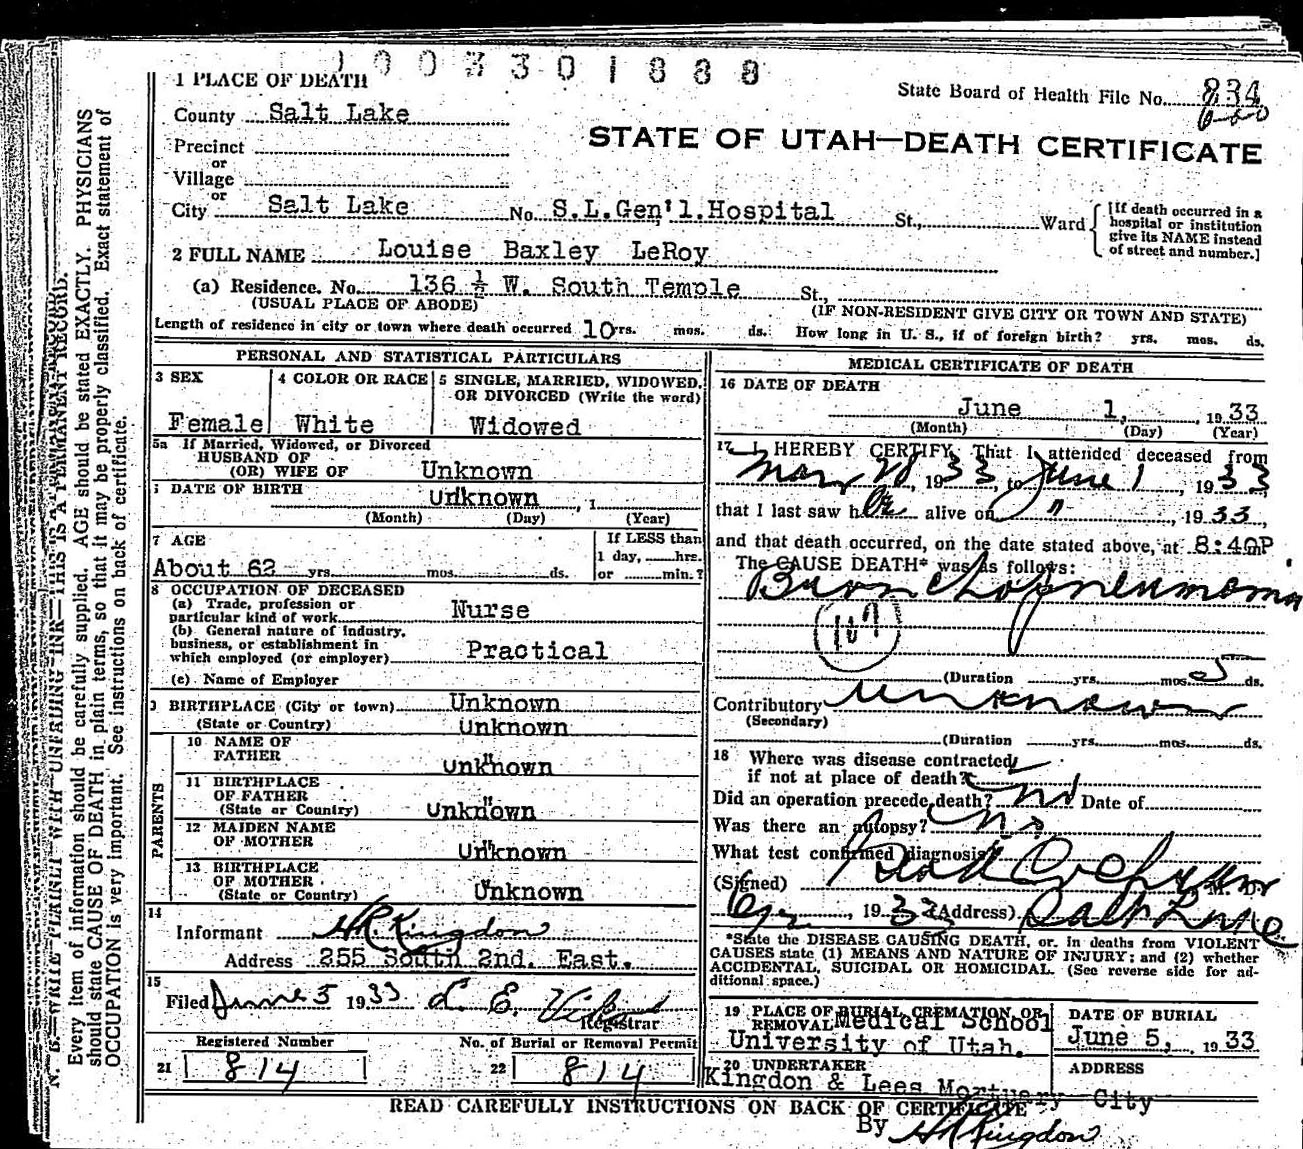 1003301888
1 PLACE OF DEATH
State Board of Health File No. 834
County Salt Lake
STATE OF UTAH—DEATH CERTIFICATE
Precinct
or
Village
or
City Salt Lake No. S.L.Gen'l.Hospital St., Ward [If death occurred in a hospital or institution give its NAME instead of street and number.]
2 FULL NAME Louise Baxley LeRoy
(a) Residence. No. 136 ½ W. South Temple St.,
(USUAL PLACE OF ABODE) (IF NON-RESIDENT GIVE CITY OR TOWN AND STATE)
Length of residence in city or town where death occurred 10 yrs. mos. ds. How long in U. S., if of foreign birth? yrs. mos. ds.
PERSONAL AND STATISTICAL PARTICULARS
3 SEX
Female
4 COLOR OR RACE
White
5 SINGLE, MARRIED, WIDOWED, OR DIVORCED (Write the word)
Widowed
5a If Married, Widowed, or Divorced
HUSBAND OF
(OR) WIFE OF Unknown
DATE OF BIRTH Unknown, 1
(Month) (Day) (Year)
7 AGE
About 62 yrs. mos. ds.
If LESS than
1 day, hrs.
or min.?
8 OCCUPATION OF DECEASED
(a) Trade, profession or
particular kind of work Nurse
(b) General nature of industry,
business, or establishment in
which employed (or employer) Practical
(c) Name of Employer
BIRTHPLACE (City or town) Unknown
(State or Country) Unknown
PARENTS
10 NAME OF
FATHER Unknown
11 BIRTHPLACE
OF FATHER
(State or Country) Unknown
12 MAIDEN NAME
OF MOTHER Unknown
13 BIRTHPLACE
OF MOTHER
(State or Country) Unknown
14
Informant H.R. Kingdon
Address 255 South 2nd. East.
15
Filed June 5 1933 L. E.
Registrar
Registered Number
21 814
No. of Burial or Removal Permit
22 814
MEDICAL CERTIFICATE OF DEATH
16 DATE OF DEATH
June 1, 1933
(Month) (Day) (Year)
17 I HEREBY CERTIFY, That I attended deceased from
May 28, 1933, to June 1, 1933
that I last saw her alive on " , 1933,
and that death occurred, on the date stated above, at 8:40P m
The CAUSE DEATH* was as follows:
Bronchopneumonia
107
(Duration yrs. mos. 5 ds.
Contributory unknown
(Secondary)
(Duration yrs. mos. ds.
18 Where was disease contracted
if not at place of death?
Did an operation precede death? no Date of
Was there an autopsy? no
What test confirmed diagnosis?
(Signed) M. D.
, 1933 (Address) Salt Lake
*State the DISEASE CAUSING DEATH, or, in deaths from VIOLENT
CAUSES state (1) MEANS AND NATURE OF INJURY; and (2) whether
ACCIDENTAL, SUICIDAL OR HOMICIDAL. (See reverse side for additional space.)
19 PLACE OF BURIAL CREMATION, OR
REMOVAL Medical School
University of Utah.
DATE OF BURIAL
June 5, 1933
20 UNDERTAKER
Kingdon & Lees Mortuary
ADDRESS
City
READ CAREFULLY INSTRUCTIONS ON BACK OF CERTIFICATE
By H R Kingdon
N. B.—WRITE PLAINLY WITH UNFADING INK—THIS IS A PERMANENT RECORD.
Every item of information should be carefully supplied. AGE should be stated EXACTLY. PHYSICIANS
should state CAUSE OF DEATH in plain terms, so that it may be properly classified. Exact statement of
OCCUPATION is very important. See instructions on back of certificate.